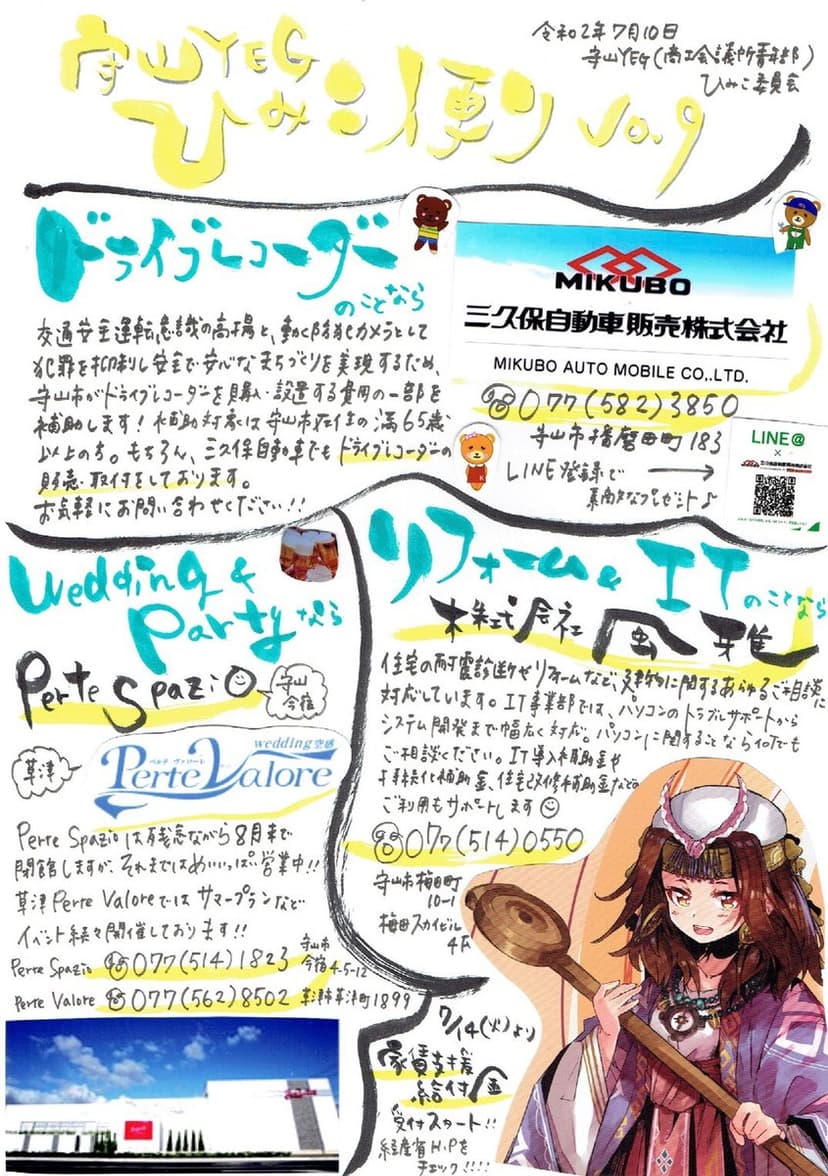 令和2年7月10日
守山YEG(商工会議所青年部)
ひみこ委員会
守山YEG
ひみこ便り Vo.9
ドライブレコーダー
のことなら
交通安全運転意識の高揚と、動く防犯カメラとして
犯罪を抑制し安全で安心なまちづくりを実現するため、
守山市がドライブレコーダーを購入・設置する費用の一部を
補助します!補助対象は守山市在住の満65歳
以上の方。もちろん、三久保自動車でもドライブレコーダーの
販売・取付をしております。
お気軽にお問い合わせください!!
MIKUBO
三久保自動車販売株式会社
MIKUBO AUTO MOBILE CO.,LTD.
077(582)3850
守山市播磨田町183
LINE登録で
素敵なプレゼント♪
LINE@
×
Wedding &
Partyなら
Perte Spazio
守山
今宿
草津
wedding空感
ペルテ・ヴァローレ
Perte Valore
Perte Spazioは残念ながら8月末で
閉館しますが、それまではめいいっぱい営業中!!
草津Perte Valoreではサマープランなど
イベント続々開催しております!!
Perte Spazio 077(514)1823 守山市
今宿4-5-12
Perte Valore 077(562)8502 草津市草津町1899
リフォーム& IT
のことなら
株式会社 風雅
住宅の耐震診断やリフォームなど、建物に関するあらゆるご相談に
対応しています。IT事業部では、パソコンのトラブルサポートから
システム開発まで幅広く対応。パソコンに関することなら何でも
ご相談ください。IT導入補助金や
持続化補助金、住宅改修補助金などの
ご利用もサポートします
077(514)0550
守山市梅田町
10-1
梅田スカイビル
4F
7/14(火)より
家賃支援
給付金
受付スタート!!
経産省H.Pを
チェック!!!!